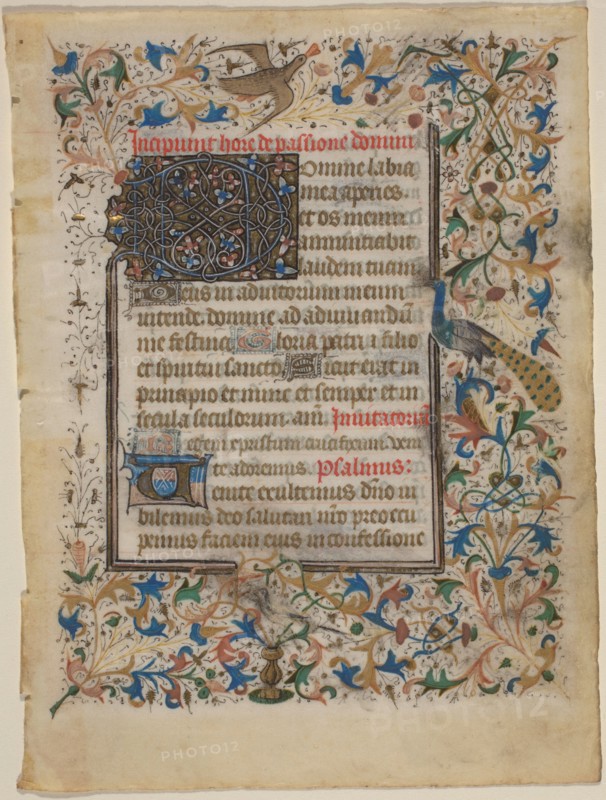 Incipiunt hore de passione domini
Domine labia
mea aperies.
et os meum
annuntiabit
laudem tuam
Deus in adiutorium meum
intende. domine ad adiuuandū
me festina Gloria patri i filio
et spiritui sancto Sicut erat in
principio et nunc et semper et in
secula seculorum. am̄. Inuitatoriū
Regem xpristum crucifixum. veni
te adoremus. Psalmus:
Uenite exultemus dn̄o iu
bilemus deo salutari nr̄o preoccu
pemus faciem eius in confessione
PHOTO12
PHOTO12
PHOTO12